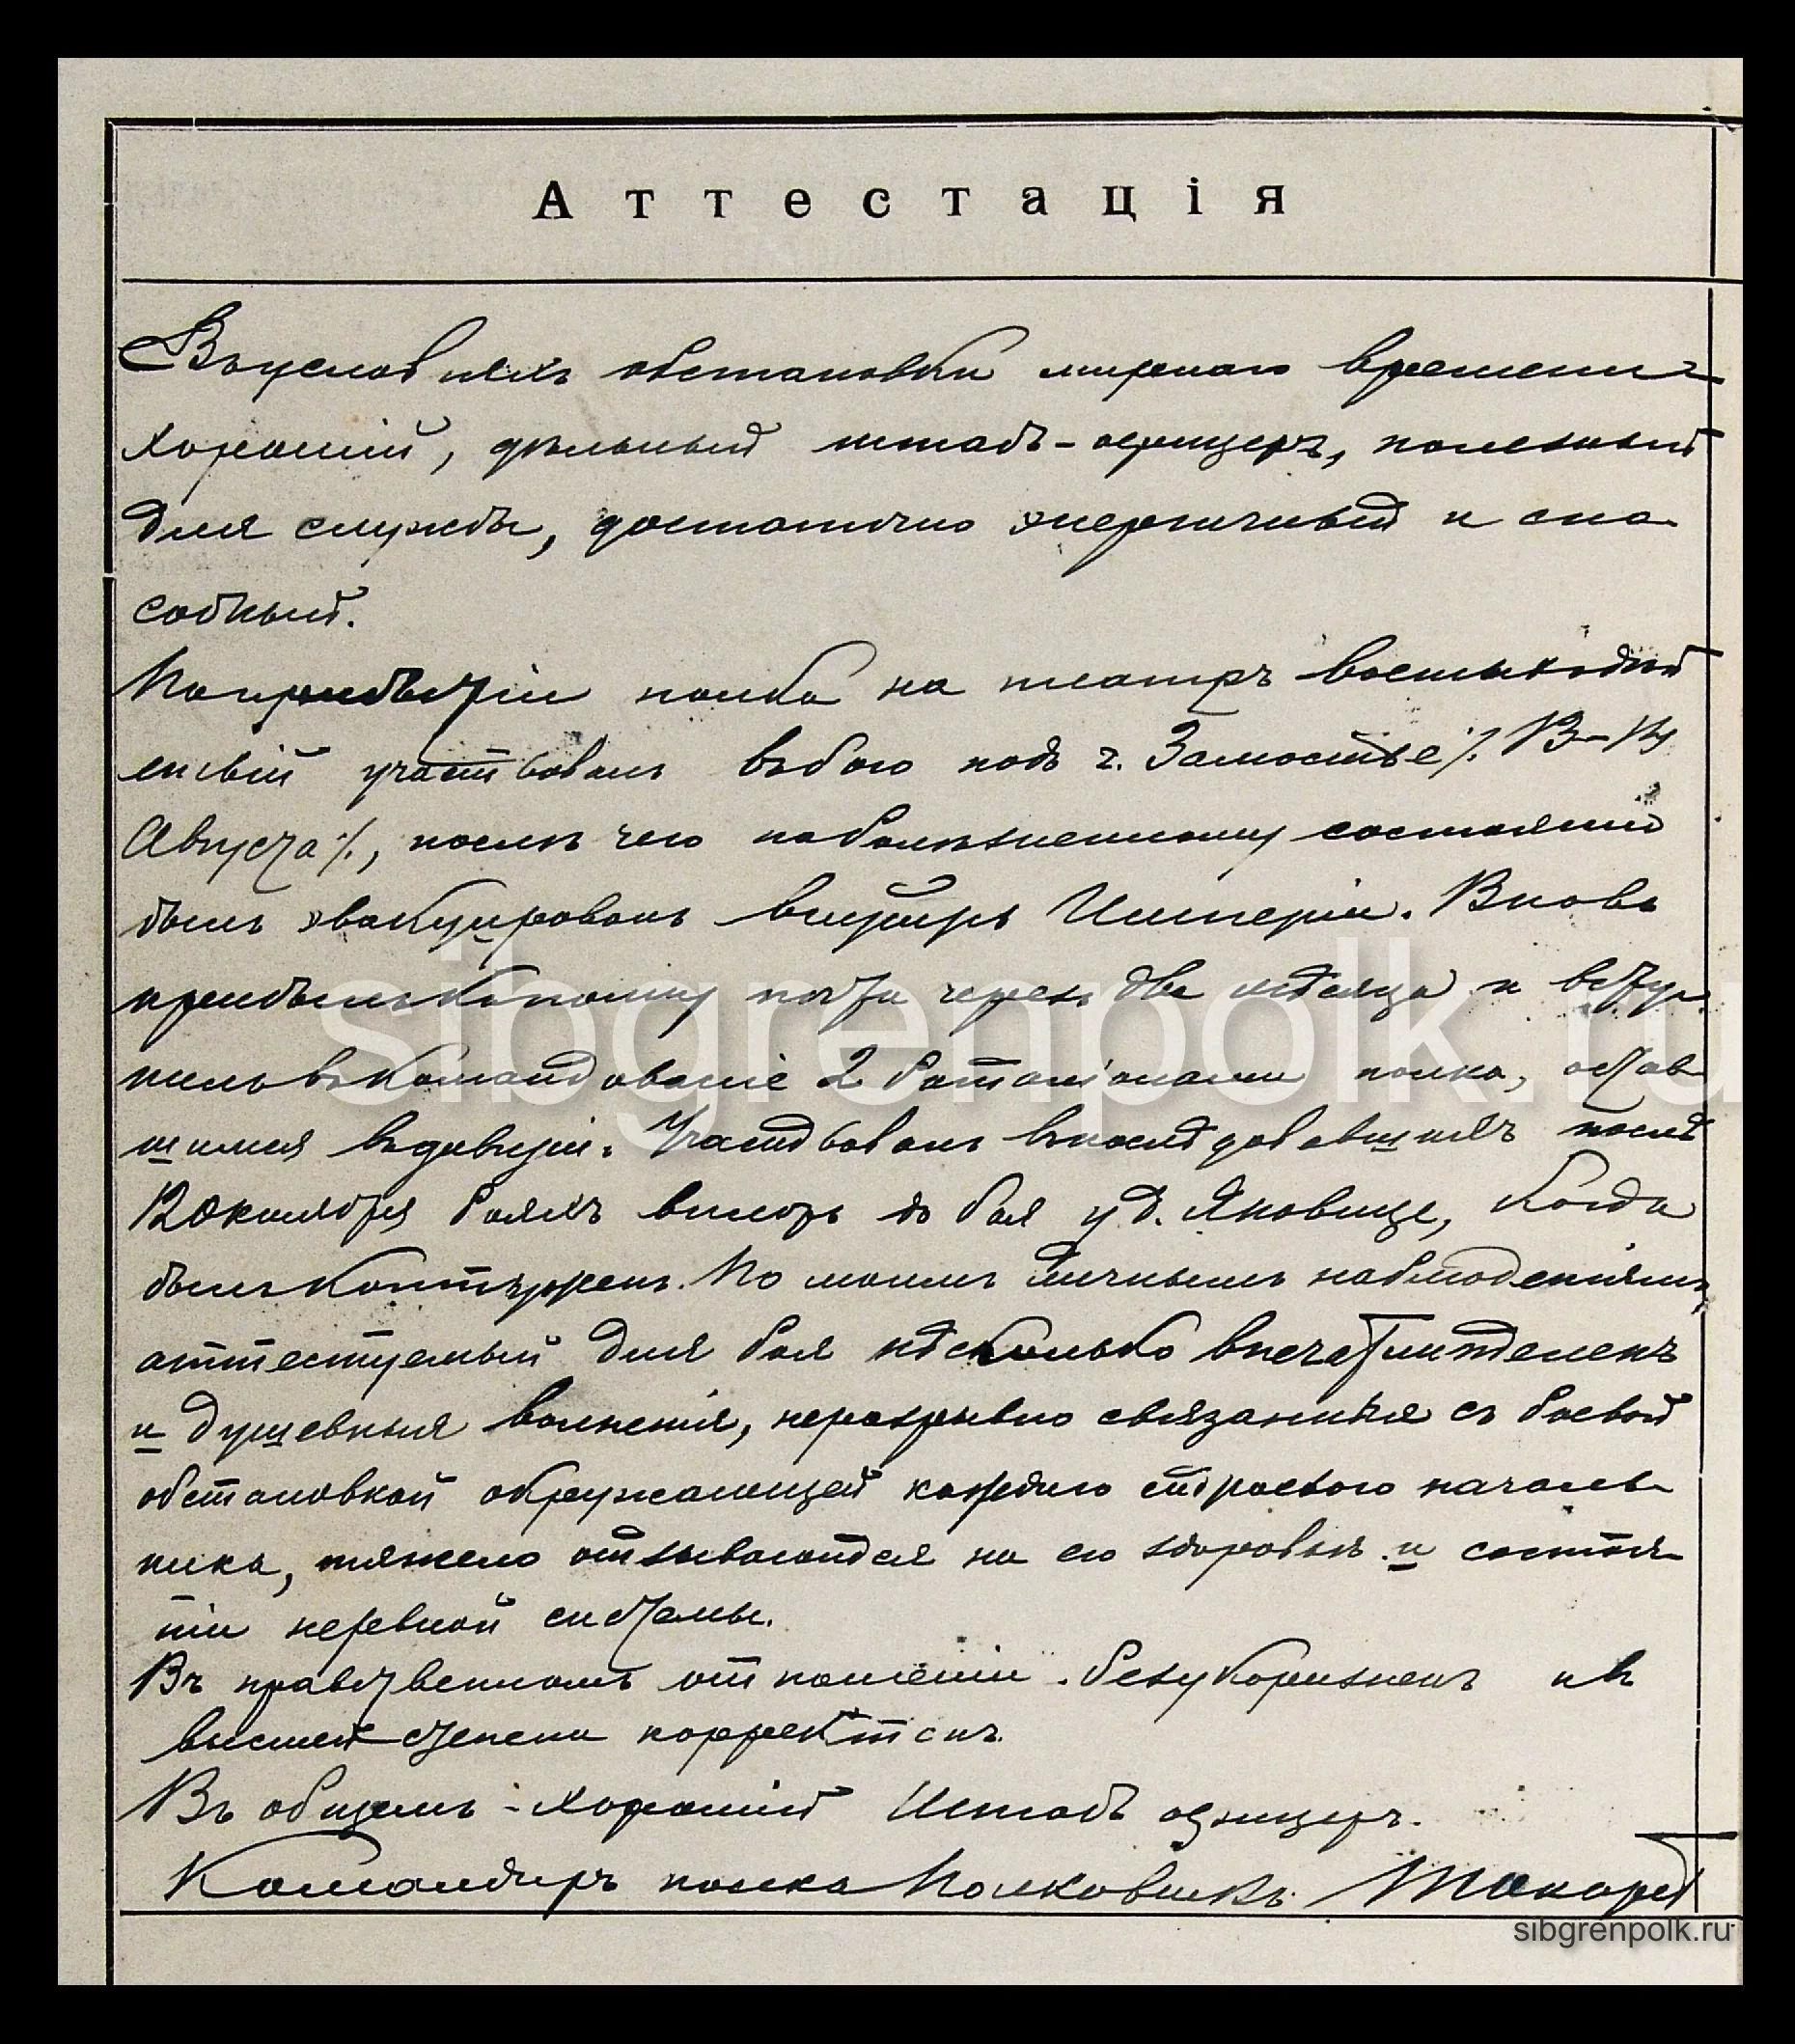 Аттестація
Въ условіяхъ обстановки мирнаго времени
хорошій, дѣльный штабъ-офицеръ, полезный
для службы, достаточно энергичный и спо-
собный.
По прибытіи полка на театръ военныхъ дѣй
ствій участвовалъ въ бою подъ г. Замостье /. 13-14
Августа ./., послѣ чего по болѣзненному состоянію
былъ эвакуированъ внутрь Имперіи. Вновь
прибылъ къ полку почти черезъ два мѣсяца и всту-
пилъ въ командованіе 2 баталіонами полка, остав
шимся въ дивизіи. Участвовалъ въ послѣдовавшихъ послѣ
12 Октября бояхъ вплоть до боя у д. Яновице, когда
былъ контуженъ. По моимъ личнымъ наблюденіямъ,
аттестуемый для боя нѣсколько впечатлителенъ
и душевныя волненія, неразрывно связанныя съ боевой
обстановкой окружающей каждаго строевого началь-
ника, тяжело отзываются на его здоровьѣ и состоя-
ніи нервной системы.
Въ нравственномъ отношеніи безукоризненъ и въ
высшей степени корректенъ.
Въ общемъ - хорошій Штабъ офицеръ.
Командиръ полка Полковникъ
sibgrenpolk.ru
sibgrenpolk.ru